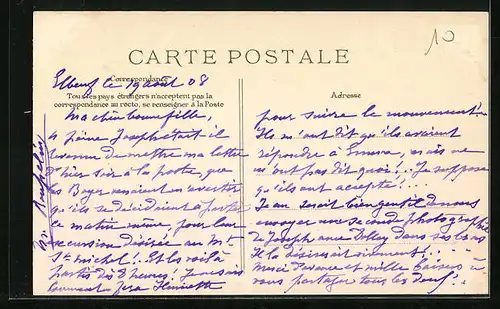 10
CARTE POSTALE
Correspondance
Elbeuf le 19 août 08
Tous les pays étrangers n'acceptent pas la
correspondance au recto, se renseigner à la Poste
Adresse
Ma chère bonne fille,
à peine Joseph était-il
revenu de mettre ma lettre
d'hier soir à la poste, que
les Boyer venaient m'avertir
qu'ils se décidaient à partir
ce matin même, pour leur
excursion désirée au Mt
St Michel! Et les voilà
partis dès 8 heures! Je ne sais
comment fera Henriette
pour suivre le mouvement!
Ils m'ont dit qu'ils avaient
répondre à mais ne
m'ont pas dit quoi! Je suppose
qu'ils ont accepté!
Je serait bien gentil de nous
envoyer une photographie
de Joseph avec dans ses bras
Il la désirerait vivement!
Merci d'avance et mille baisers à
vous partager tous les deux!